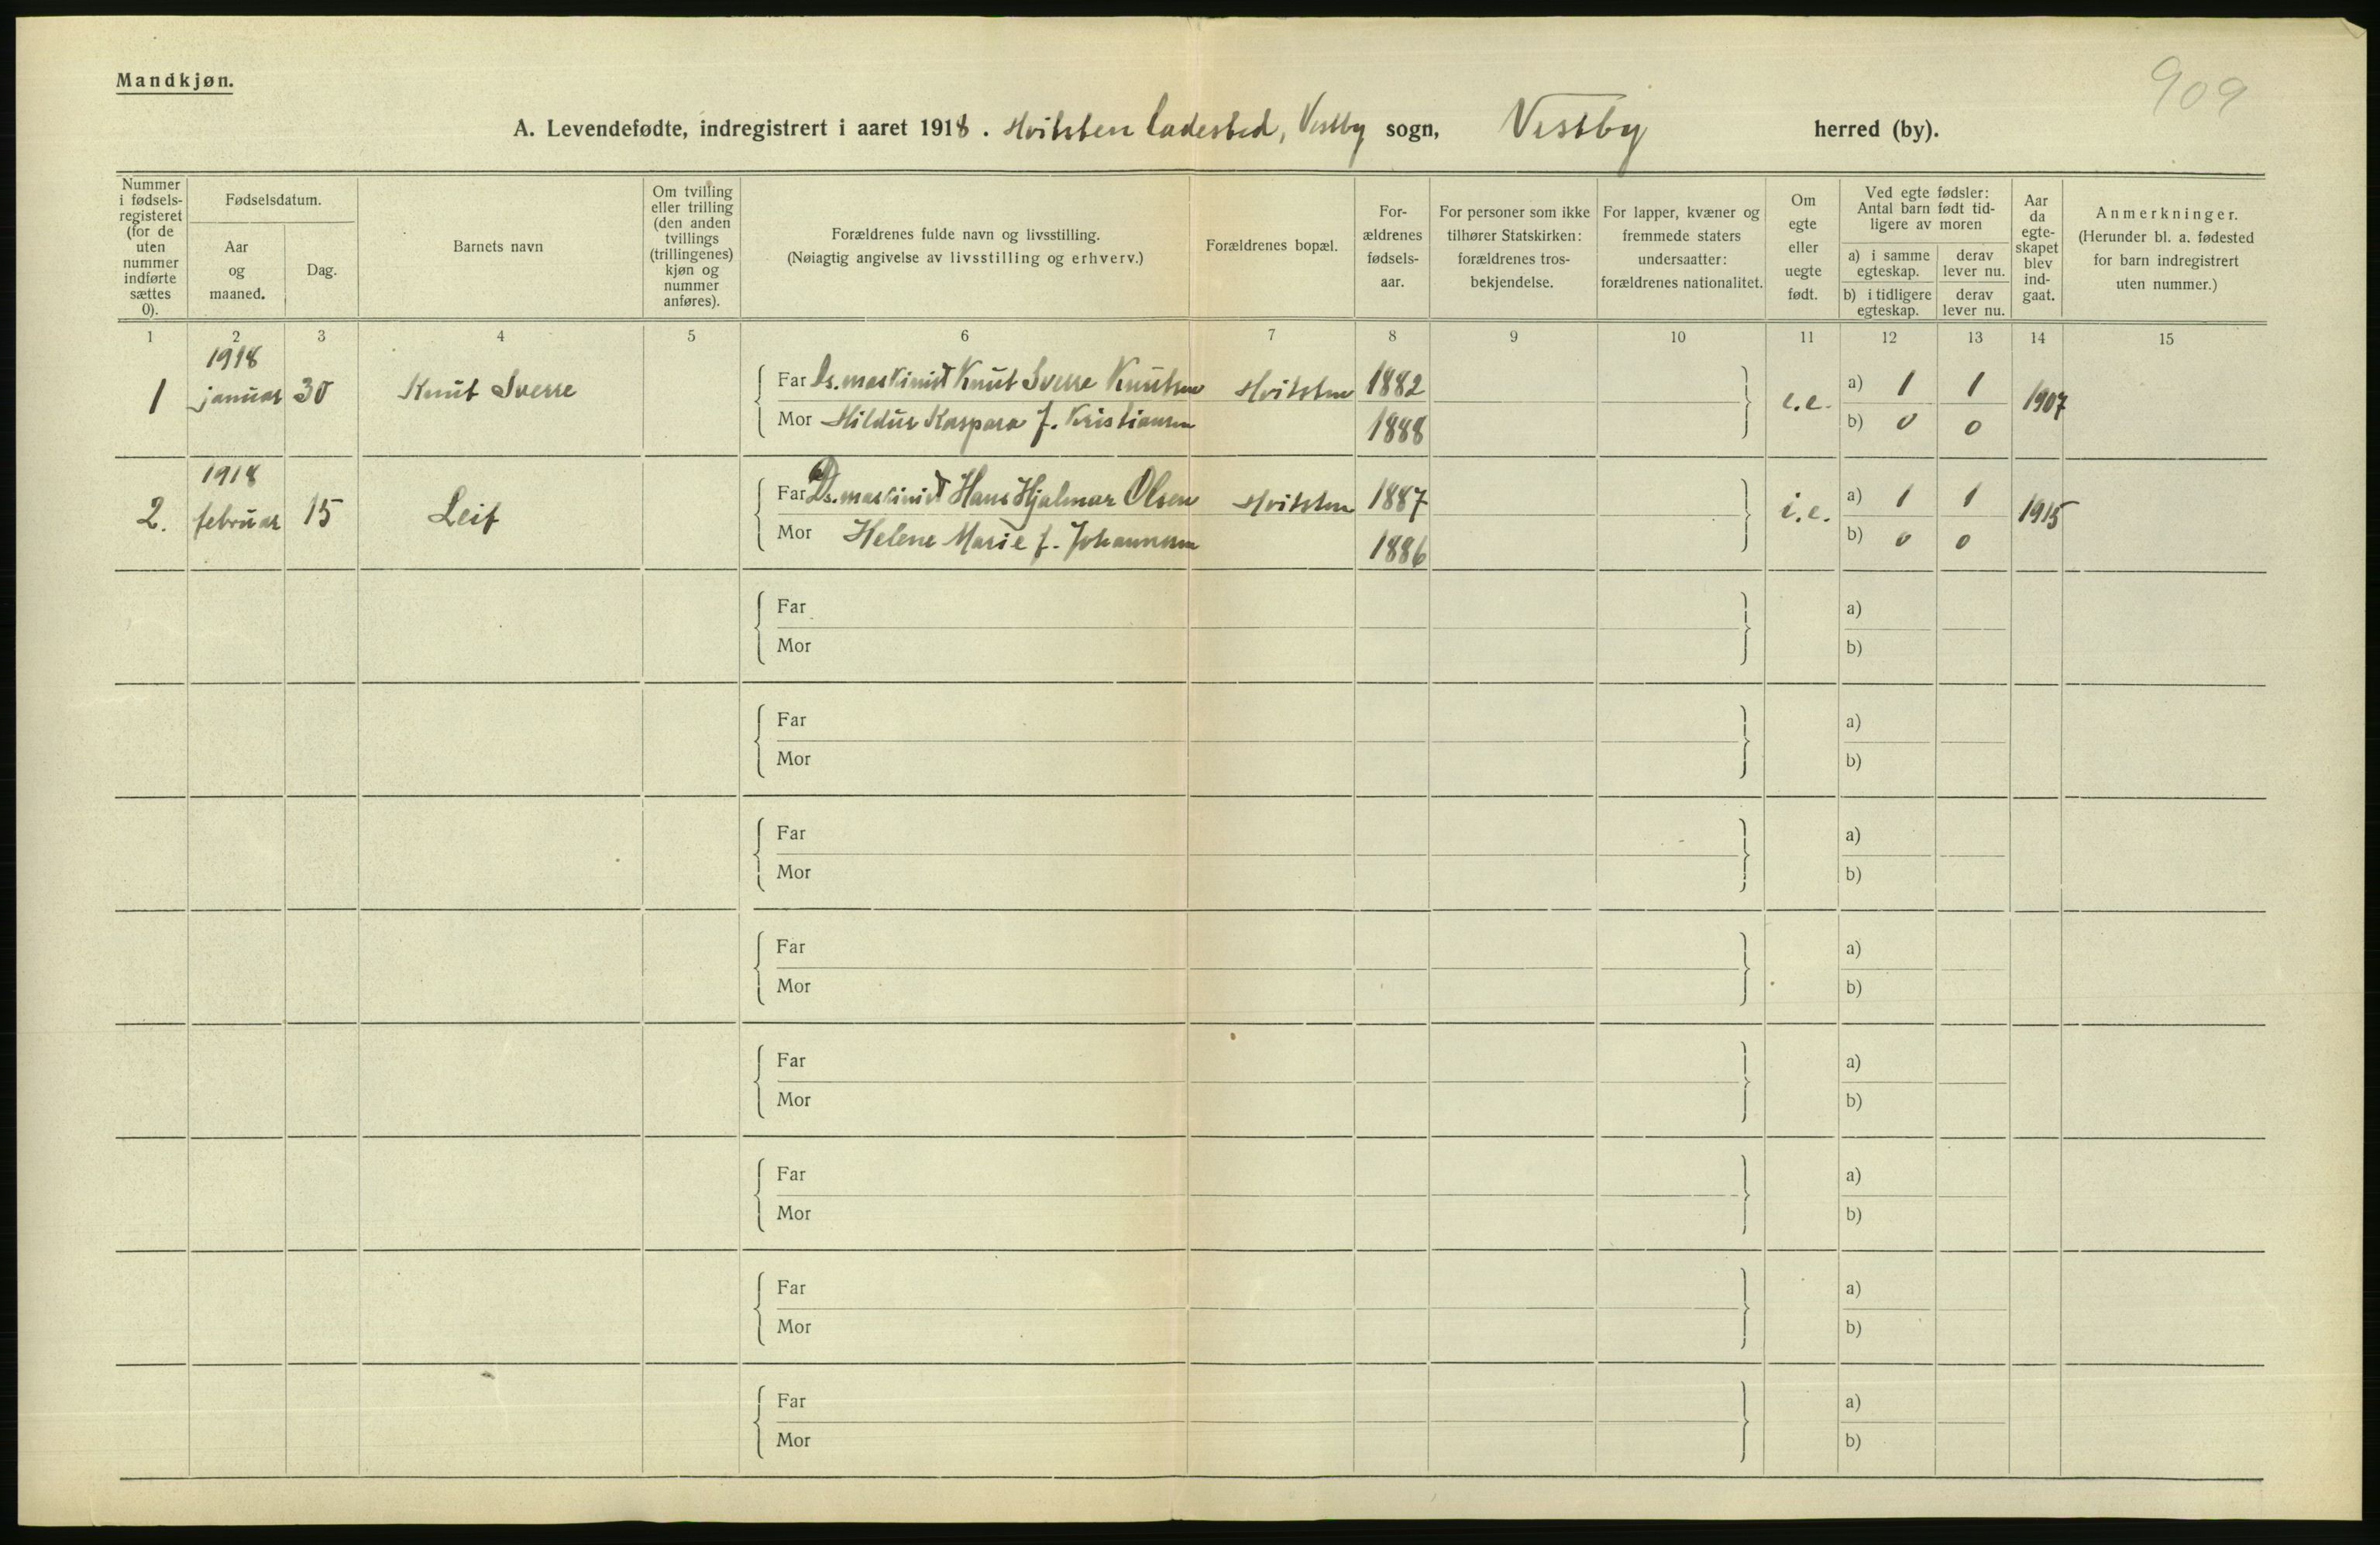 Mandkjøn.
909
A. Levendefødte, indregistrert i aaret 1918. Hvitsten ladested, Vestby sogn, Vestby herred (by).
Nummer i fødsels-registeret (for de uten nummer indførte sættes 0).
Fødselsdatum.
Aar og maaned.
Dag.
Barnets navn
Om tvilling eller trilling (den anden tvillings (trillingenes) kjøn og nummer anføres).
Forældrenes fulde navn og livsstilling.
(Nøiagtig angivelse av livsstilling og erhverv.)
Forældrenes bopæl.
For-ældrenes fødsels-aar.
For personer som ikke tilhører Statskirken: forældrenes tros-bekjendelse.
For lapper, kvæner og fremmede staters undersaatter: forældrenes nationalitet.
Om egte eller uegte født.
Ved egte fødsler: Antal barn født tid-ligere av moren
a) i samme egteskap.
derav lever nu.
b) i tidligere egteskap.
derav lever nu.
Aar da egte-skapet blev ind-gaat.
Anmerkninger.
(Herunder bl. a. fødested for barn indregistrert uten nummer.)
1 2 3 4 5 6 7 8 9 10 11 12 13 14 15
1918
1 januar 30 Knut Sverre Far Ds. maskinist Knut Sverre Knutsen Hvitsten 1882 e.e. a) 1 1 1907
Mor Hildur Kaspara f. Kristiansen 1888 b) 0 0
1918
2. februar 15 Leif Far Ds. maskinist Hans Hjalmar Olsen Hvitsten 1887 i.e. a) 1 1 1915
Mor Helene Marie f. Johannesen 1886 b) 0 0
Far a)
Mor b)
Far a)
Mor b)
Far a)
Mor b)
Far a)
Mor b)
Far a)
Mor b)
Far a)
Mor b)
Far a)
Mor b)
Far a)
Mor b)